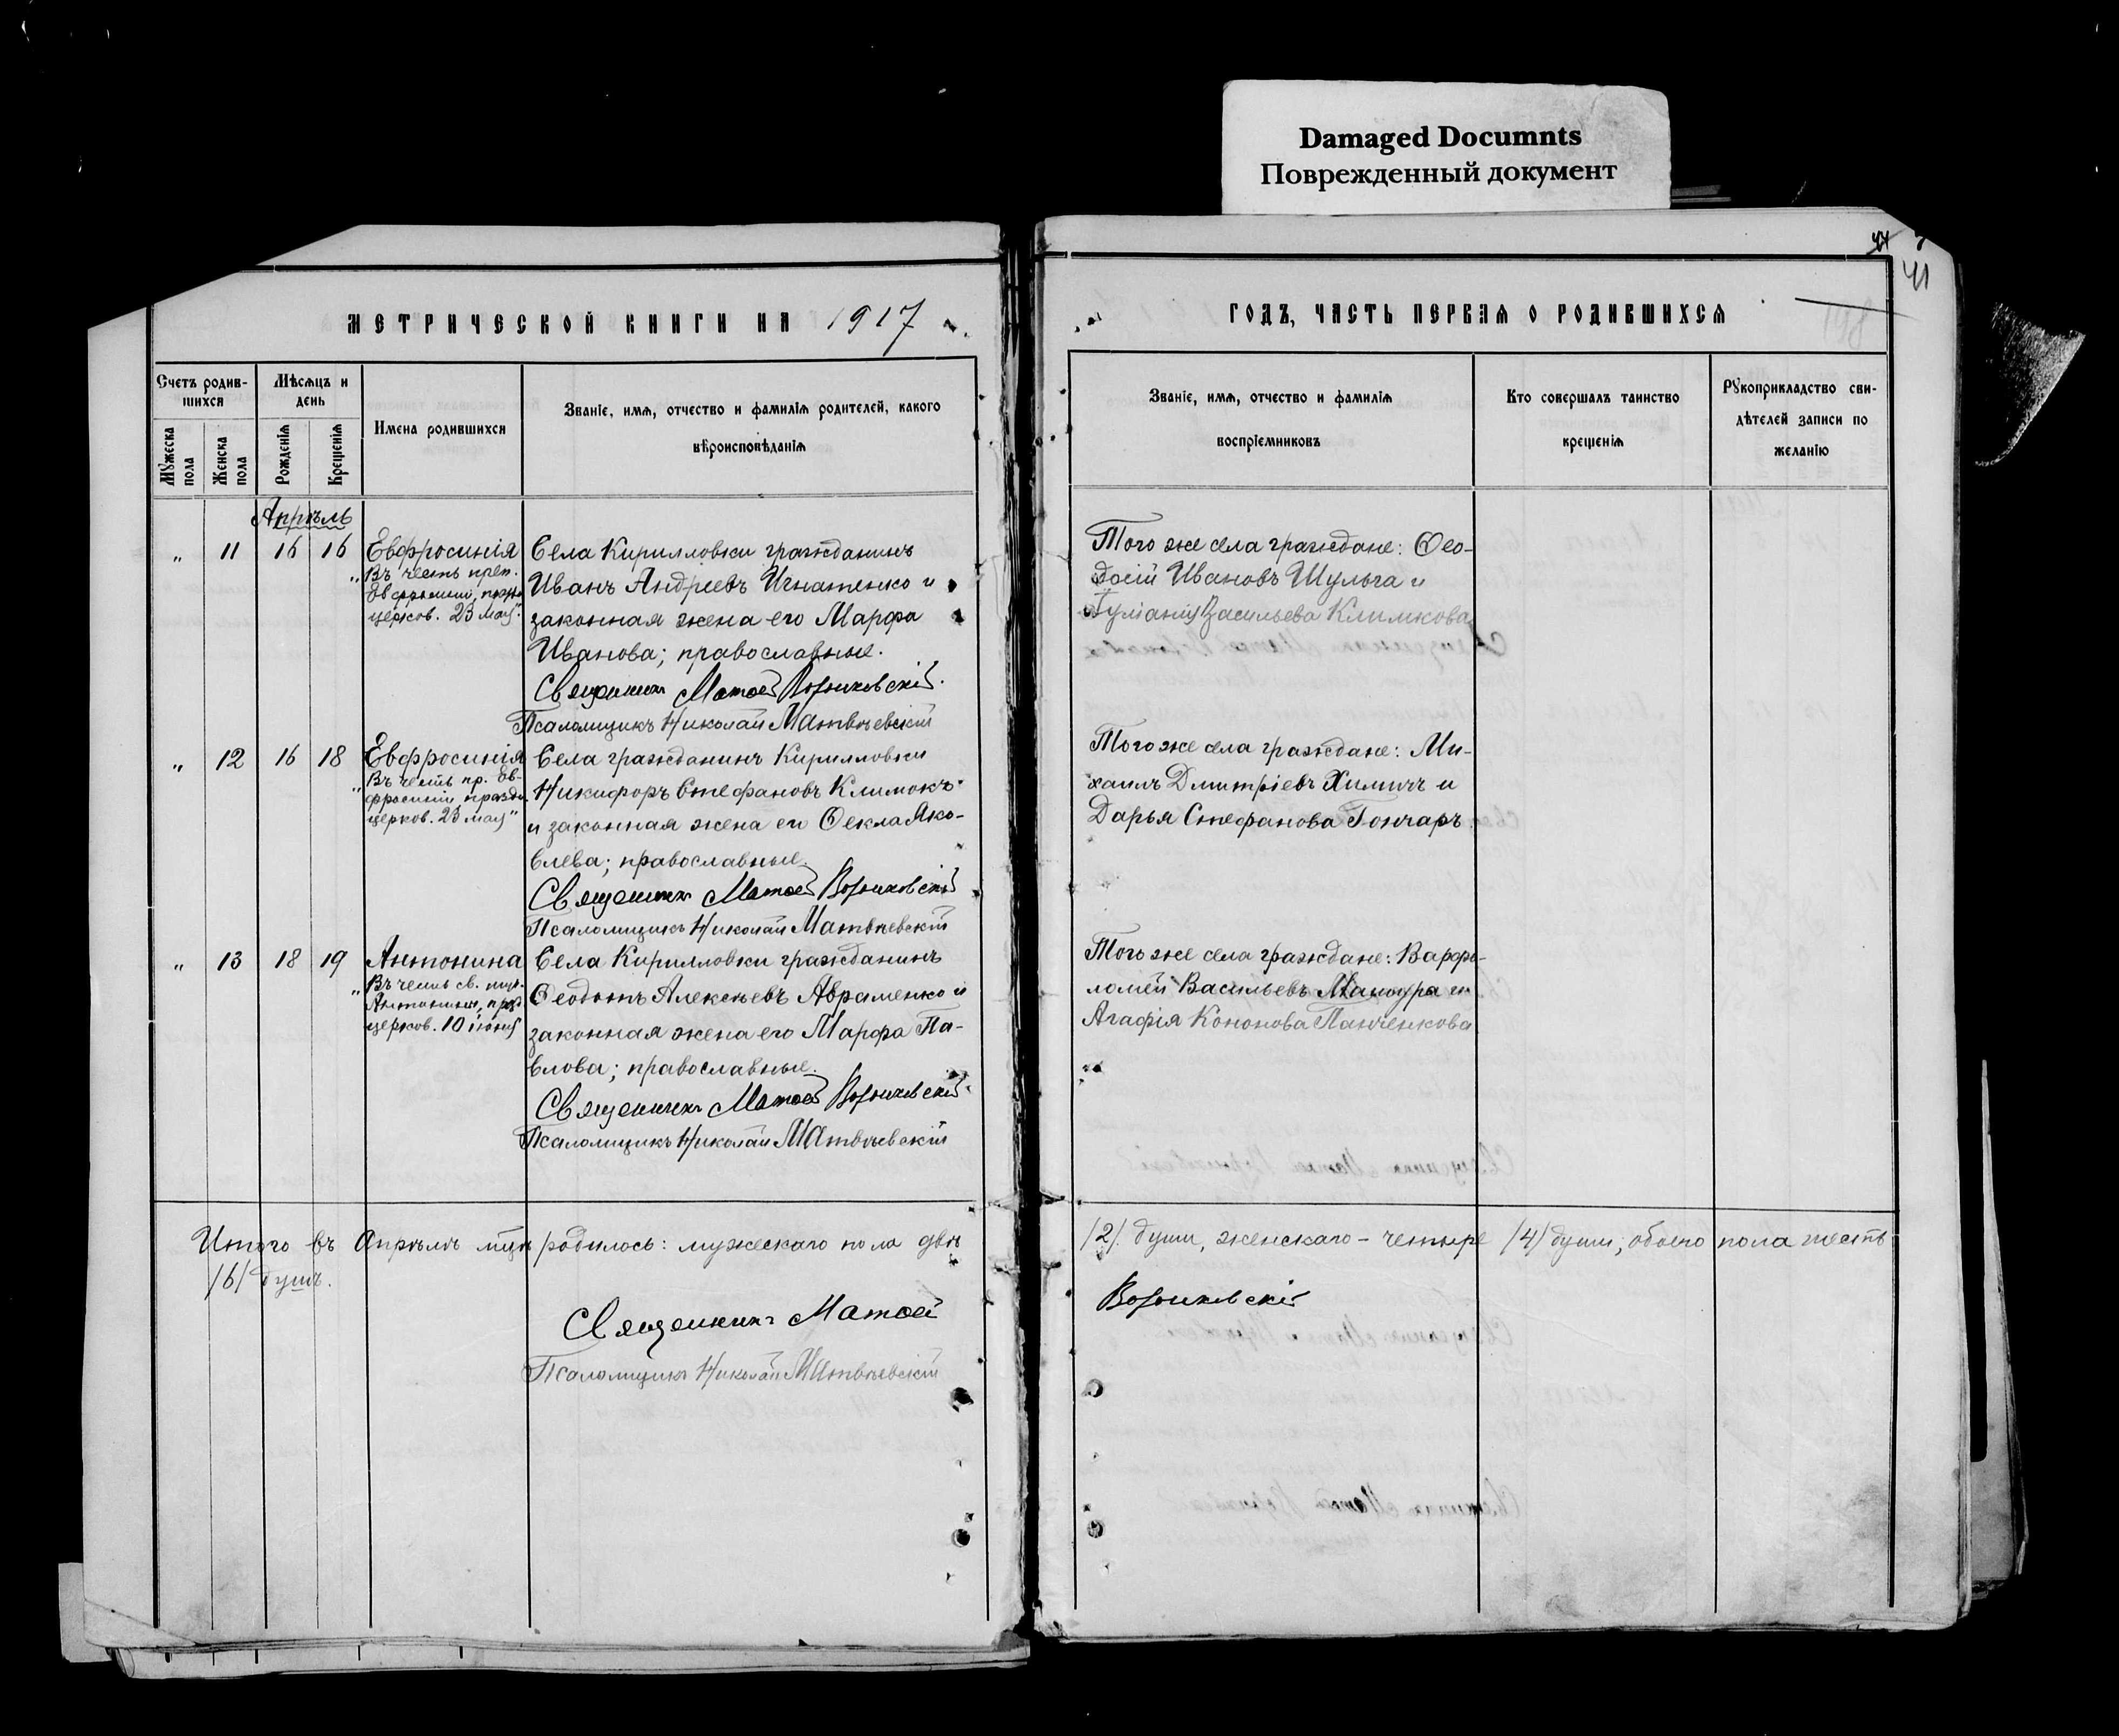 Damaged Documnts
Поврежденный документ
44
41
МЕТРИЧЕСКОЙ КНИГИ НА 1917
ГОДЪ, ЧАСТЬ ПЕРВАЯ О РОДИВШИХСЯ
Счетъ родив-
шихся
Мужеска пола
Женска пола
Мѣсяцъ и
день
Рожденія
Крещенія
Имена родившихся
Званіе, имя, отчество и фамилія родителей, какого
вѣроисповѣданія
Званіе, имя, отчество и фамилія
воспріемниковъ
Кто совершалъ таинство
крещенія
Рукоприкладство сви-
дѣтелей записи по
желанію
Апрѣль
„ 11 16 16
Евфросинія
„Въ честь преп.
Евфросиніи, празд.
церков. 23 мая"
Села Кирилловки гражданинъ
Иванъ Андреевъ Игнатенко и
законная жена его Марфа
Иванова; православные.
Священникъ Матѳей
Псаломщикъ Николай Матвѣевскій
Того же села граждане: Ѳео-
досій Ивановъ Шульга и
Іуліанія Васильева Климкова
„ 12 16 18
Евфросинія
„Въ честь пр. Ев-
фросиніи, праздн.
церков. 23 мая"
Села гражданинъ Кирилловки
Никифоръ Стефановъ Климокъ
и законная жена его Ѳекла Яко-
влева; православные.
Священникъ Матѳей
Псаломщикъ Николай Матвѣевскій
Того же села граждане: Ми-
хаилъ Дмитріевъ Химичъ и
Дарья Стефанова Гончаръ
„ 13 18 19
Антонина
„Въ честь св. муч.
Антонины, праз.
церков. 10 іюня
Села Кирилловки гражданинъ
Ѳеодотъ Алексѣевъ Авраменко и
законная жена его Марфа Па-
влова; православные.
Священникъ Матѳей
Псаломщикъ Николай Матвѣевскій
Того же села граждане: Варфо-
ломей Васильевъ и
Агафія Кононова Панченкова
Итого въ Апрѣлѣ мцѣ родилось: мужескаго пола двѣ /2/ души, женскаго - четыре /4/ души, обоего пола шесть
/6/ душъ.
Священникъ Матѳей
Псаломщикъ Николай Матвѣевскій